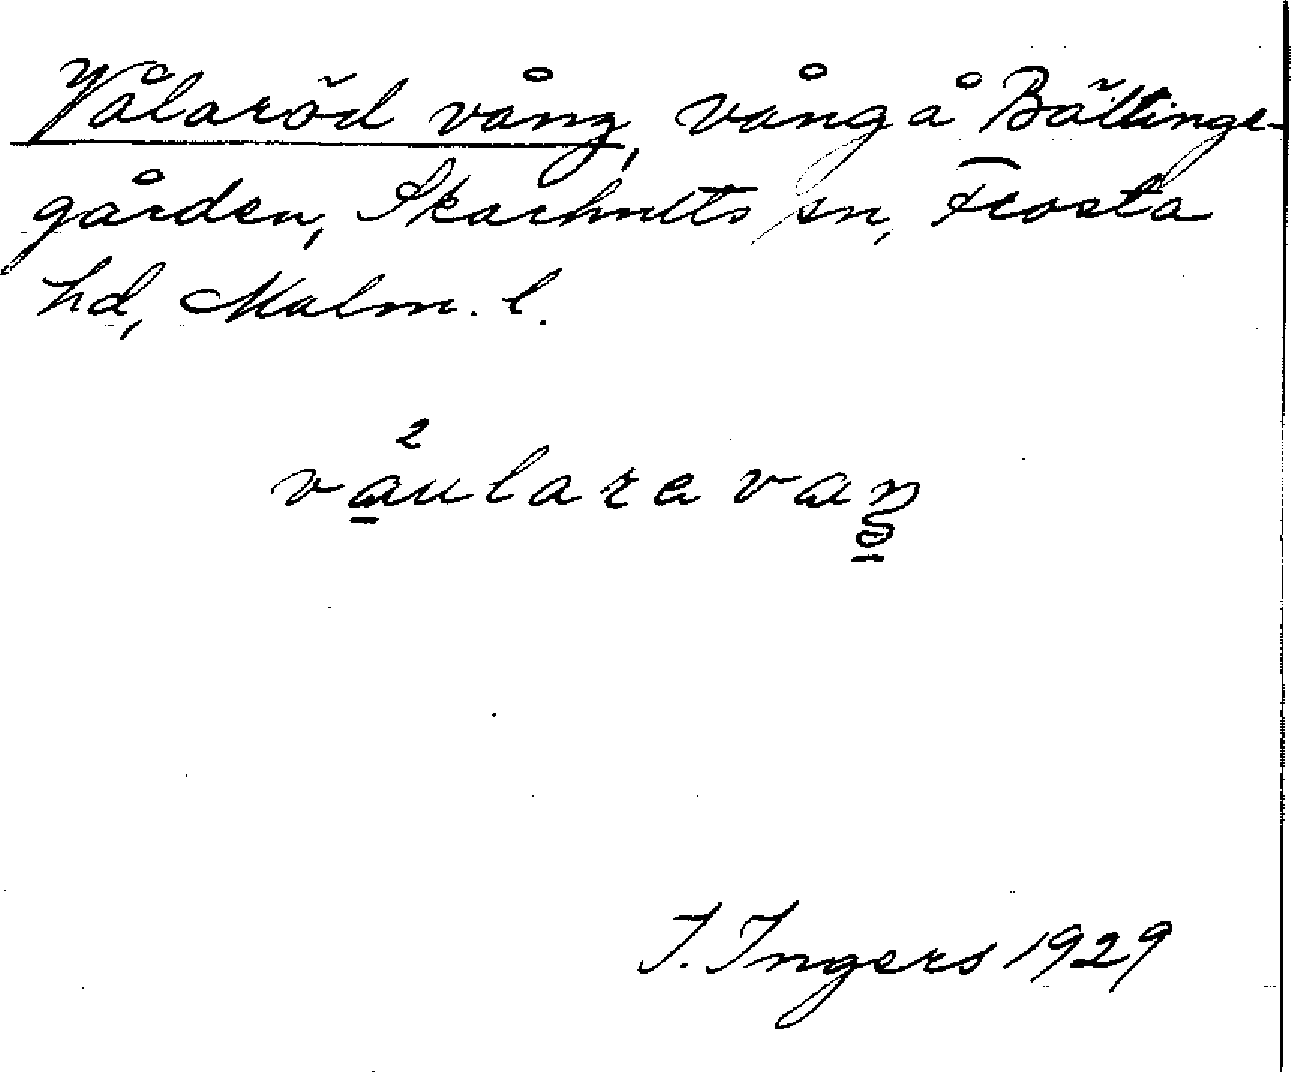 Vålaröd vång, vång å Bältinge-
gården, Skarhults sn, Frosta
hd, Malm. l.
vȧ²ulara vaŋ
I. Ingers 1929